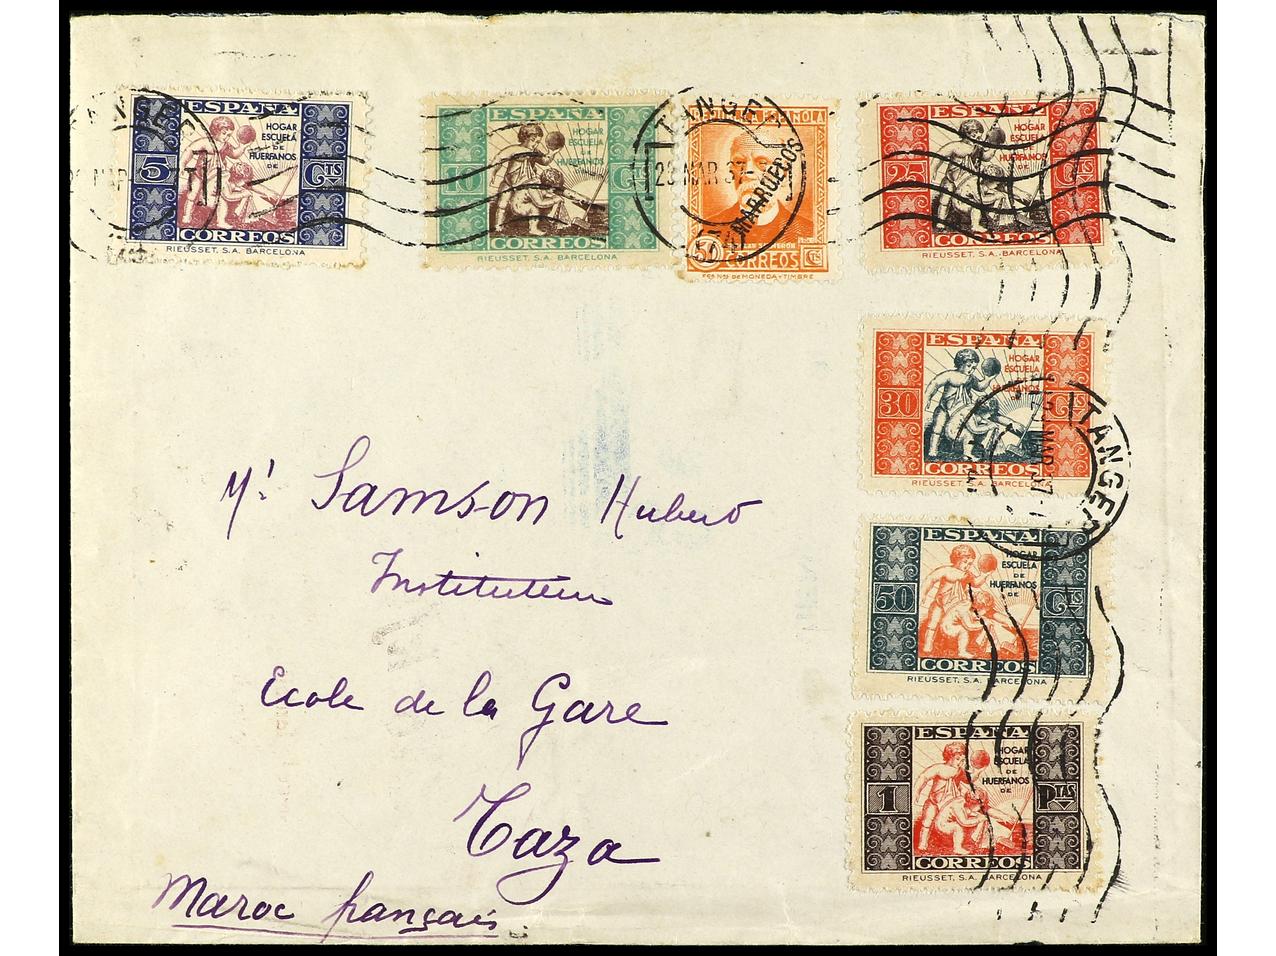 ESPAÑA
HOGAR
ESCUELA
DE
HUERFANOS
DE
5 Cts
CORREOS
RIEUSSET, S.A. BARCELONA
ESPAÑA
HOGAR
ESCUELA
DE
HUERFANOS
10
CORREOS
RIEUSSET, S.A. BARCELONA
ESPAÑOLA
50 CORREOS CTS
MONEDA Y TIMBRE
TANGER
MAR 37
MARRUECOS
ESPAÑA
HOGAR
ESCUELA
HUERFANOS
25 Cts
CORREOS
RIEUSSET, S.A. BARCELONA
ESPAÑA
HOGAR
ESCUELA
30 Cts
CORREOS
RIEUSSET, S.A. BARCELONA
TANGER
MAR 37
ESPAÑA
HOGAR
ESCUELA
DE
HUERFANOS
DE
50 Cts
CORREOS
RIEUSSET, S.A. BARCELONA
ESPAÑA
HOGAR
ESCUELA
DE
HUERFANOS
DE
1 PTAS
CORREOS
RIEUSSET, S.A. BARCELONA
Mr Samson Hubert
Instituteur
Ecole de la Gare
Taza
Maroc français